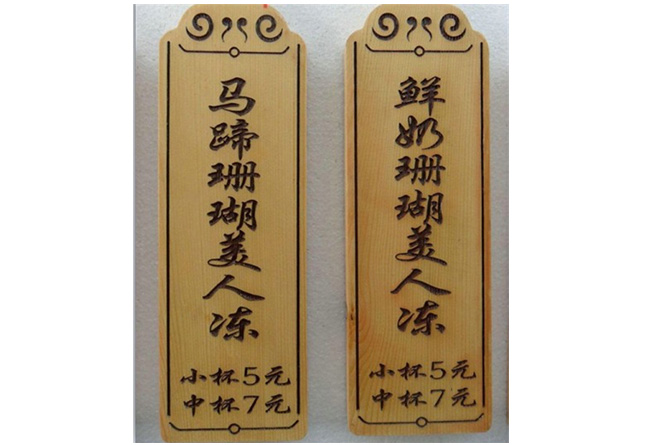 马蹄珊瑚美人冻
小杯5元
中杯7元
鲜奶珊瑚美人冻
小杯5元
中杯7元